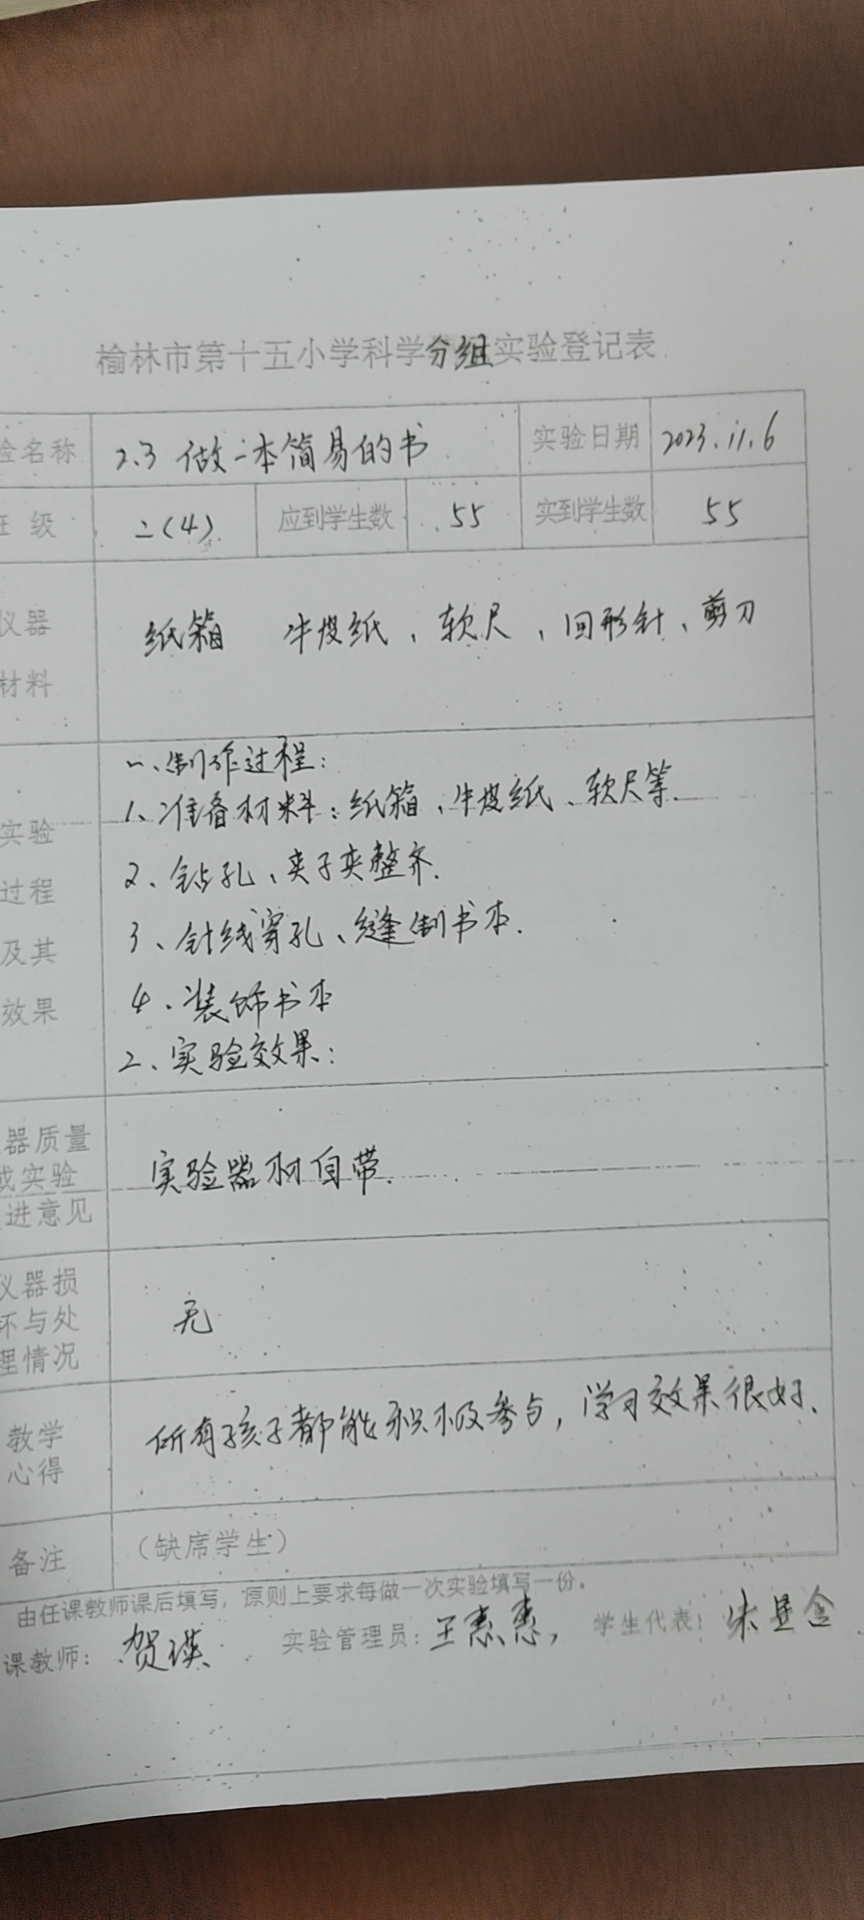 榆林市第十五小学科学分组实验登记表
验名称 2.3 做一本简易的书 实验日期 2023.11.6
班 级 二(4) 应到学生数 55 实到学生数 55
仪器 纸箱 牛皮纸、软尺、回形针、剪刀
材料
一、制作过程:
1、准备材料:纸箱、牛皮纸、软尺等.
实验
2、钻孔、夹子夹整齐.
过程
3、针线穿孔、缝制书本.
及其
4、装饰书本
效果
二、实验效果:
器质量
或实验 实验器材自带.
进意见
仪器损
坏与处 无
理情况
教学 所有孩子都能积极参与,学习效果很好.
心得
备注 (缺席学生)
由任课教师课后填写,原则上要求每做一次实验填写一份。
课教师: 贺瑛 实验管理员: 王惠惠, 学生代表: 朱